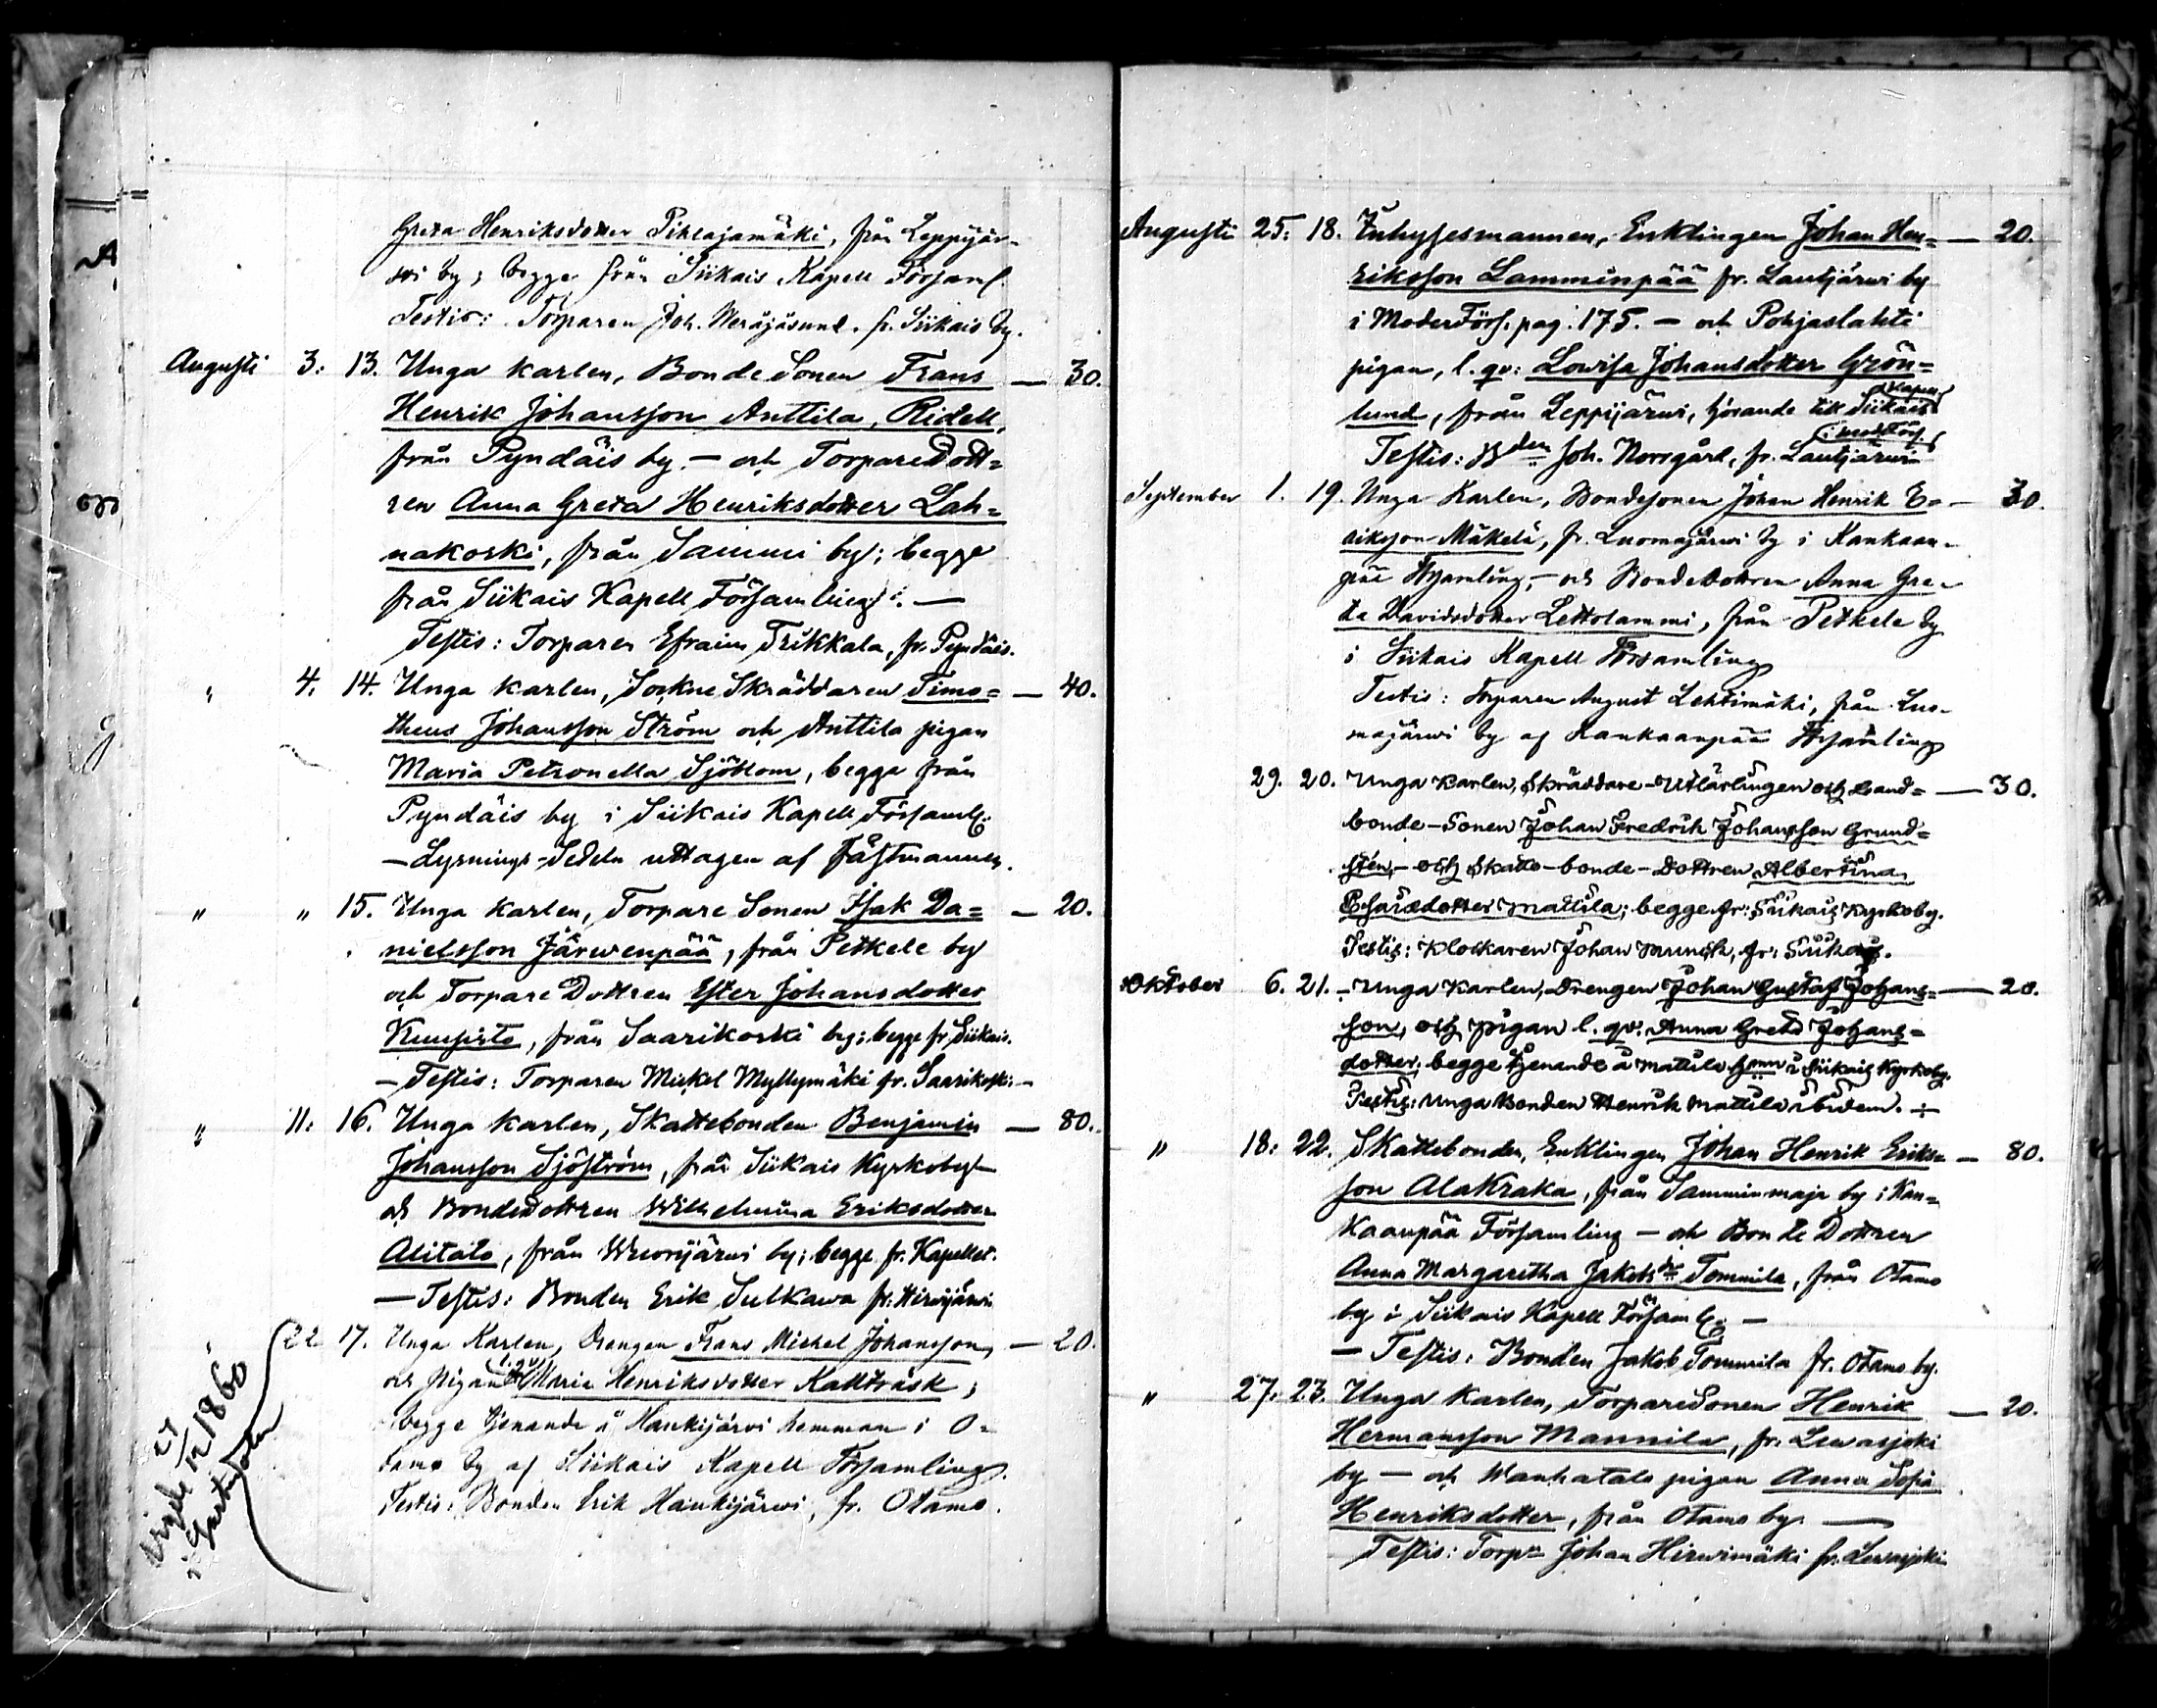 Greta Henriksdotter Pihlajamäki, från Leppijär-
wi by; begge från Siikais Kapell Församl.
Testis: Torparen Joh. fr. Siikais by.
Augusti 3: 13. Unga karlen, Bonde Sonen Frans — 30.
Henrik Johansson Anttila, Ridell,
från Pyndäis by. — och TorpareDott=
ren Anna Greta Henriksdotter Lah=
nakoski, från Sammi by; begge
från Siikais Kapell Församling. —
Testis: Torparen Efraim Trikkala, fr. Pyndäis.
" 4. 14. Unga karlen, Sockne Skräddaren Timo= — 40.
theus Johansson Ström och Anttila pigan
Maria Petronella Sjöblom, begge från
Pyndäis by i Siikais Kapell Församlg:
— Lysnings-Sedeln uttagen af Fästmannen.
" " 15. Unga karlen, Torpare Sonen Isak Da= — 20.
nielsson Järwenpää, från Petkele by
och Torpare Dottren Ester Johansdotter
Kuusisto, från Saarikoski by; begge fr. Siikais.
— Testis: Torparen Mickel Myllymäki fr. Saarikoski —
" 11: 16. Unga karlen, Skattebonden Benjamin — 80.
Johansson Sjöström, från Siikais Kyrkoby —
och Bondedottren Wilhelmina Eriksdotter
Alitalo, från by; begge fr. Kapellet.
— Testis: Bonden Erik Sulkawa fr. Hirwijärwi
22 17. Unga Karlen, Drengen Frans Mickel Johansson, — 20.
och pigan l. qv. Maria Henriksdotter Kallträsk;
begge tjenande å Haukijärvi hemman i O=
tamo by af Siikais Kapell Församling.
Testis: Bonden Erik Haukijärwi, fr. Otamo.
27/12 1860
i
Augusti 25: 18. Inhysesmannen, Enklingen Johan Hen= — 20.
riksson Lamminpää fr. Lautjärwi by
i ModerFörs. pag. 175. — och Pohjaslahti
pigan, l. qv: Lowisa Johansdotter Grön=
lund, från Leppijärwi, hörande till Siikais Kapell
Testis: Bden Joh. Norrgård, fr. Lautjärwi i ModFörs.
September 1. 19. Unga Karlen, Bondesonen Johan Henrik E= — 30.
riksson Mäkelä, fr. Luomajärwi by i Kankaan-
pää Församling, — och BondeDottren Anna Gre-
ta Davidsdotter Lettolammi, från Petkele by
i Siikais Kapell Församling
Testis: Torparen August Lehtimäki, från Luo-
majärwi by af Kankaanpää Församling
29. 20. Unga Karlen, Skräddare-Utlärlingen och Land= — 30.
bonde-Sonen Johan Fredrik Johansson Grund=
sten, — och Skatte-bonde-Dottren Albertina
Esaiædotter Mattila; begge fr: Siikais Kyrkoby.
Testis: Klockaren Johan Munck, fr: Siikais.
Oktober 6. 21. — Unga Karlen, Drengen Johan Gustaf Johans= — 20.
son, och pigan l. qv. Anna Greta Johans=
dotter, begge tjenande å Mattila hemn i Siikais Kyrkoby.
Testis: Unga Bonden Henrik Mattila ibidem. ÷
" 18: 22. Skattebonden, Enklingen Johan Henrik Eriks= — 80.
son AlaKraka, från Samminmaja by i Kan=
kaanpää Församling — och Bonde Dottren
Anna Margaretha Jakobsdr Tommila, från Otamo
by i Siikais Kapell Församlg: —
— Testis: Bonden Jakob Tommila fr. Otamo by.
" 27: 23. Unga Karlen, TorpareSonen Henrik — 20.
Hermansson Mannila, fr. Lewasjoki
by — och Wanhatalo pigan Anna Sofia
Henriksdotter, från Otamo by. —
Testis: Torpn Johan Hirwimäki fr. Lewasjoki